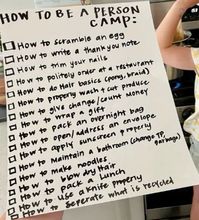 HOW TO BE A PERSON
CAMP:
HOW TO SCRAMBLE AN EGG
HOW TO WRITE A THANK YOU NOTE
HOW TO TRIM YOUR NAILS
HOW TO POLITELY ORDER AT A RESTAURANT
HOW TO DO HAIR BASICS (PONY, BRAID)
HOW TO PROPERLY WASH & CUT PRODUCE
HOW TO GIVE CHANGE/COUNT MONEY
HOW TO WRAP A GIFT
HOW TO PACK AN OVERNIGHT BAG
HOW TO OPEN/ADDRESS AN ENVELOPE
HOW TO APPLY SUNSCREEN PROPERLY
HOW TO MAINTAIN A BATHROOM (CHANGE TP, GARBAGE)
HOW TO MAKE NOODLES
HOW TO BLOW DRY HAIR
HOW TO PACK A LUNCH
HOW TO USE A KNIFE PROPERLY
HOW TO SEPERATE WHAT IS RECYCLED